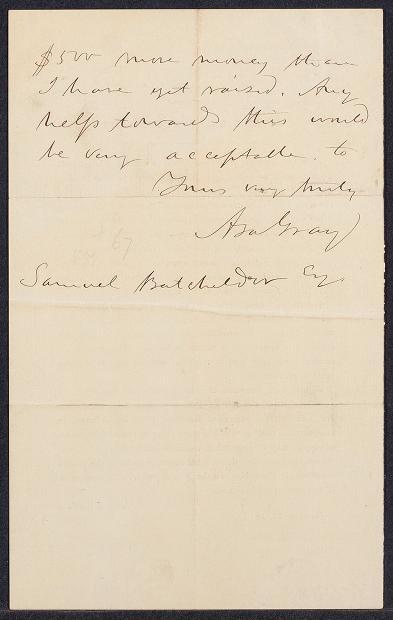 $500 more money than
I have yet raised. Any
help towards this would
be very acceptable to
Yours very truly
Asa Gray
67
Samuel Batchelder Esq.